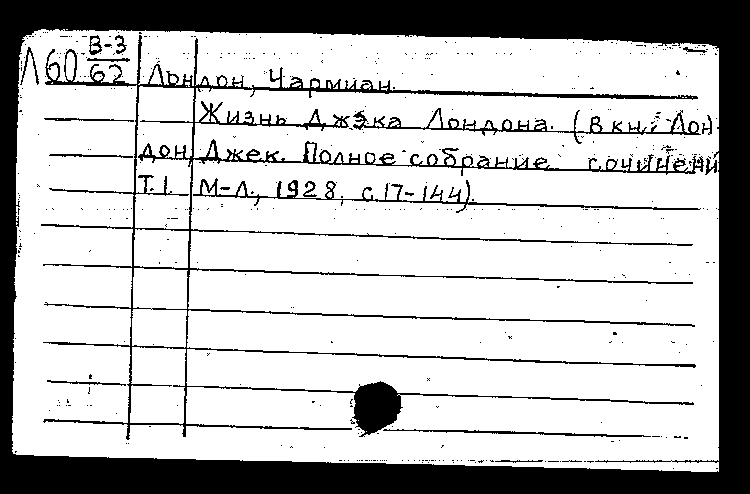 Л60 В-3/62
Лондон, Чармиан.
Жизнь Джэка Лондона. (В кн.: Лон-
дон, Джек. Полное собрание сочинений
Т.1. М-Л., 1928, с.17-144).